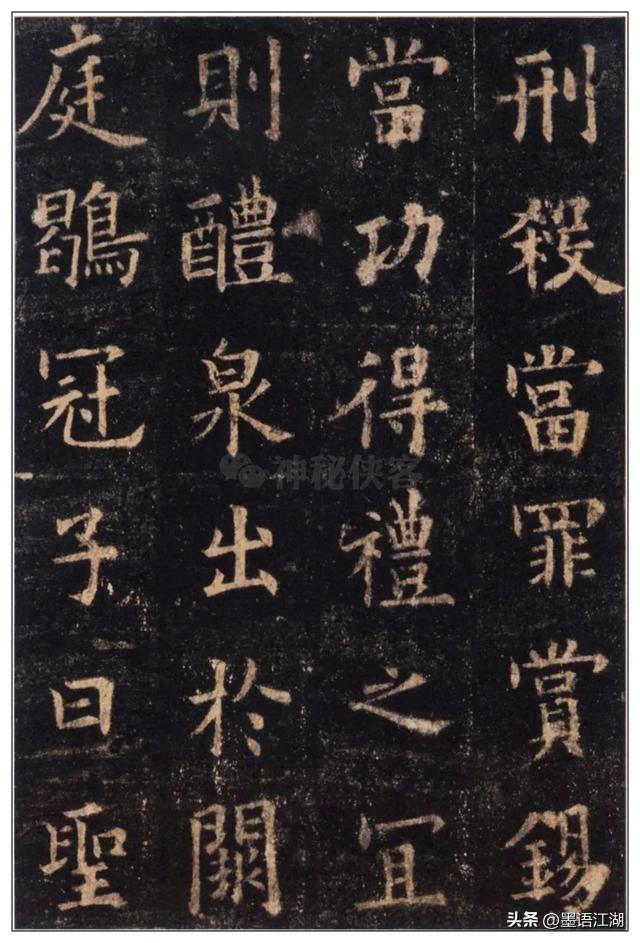 刑殺當罪賞錫
當功得禮之宜
則醴泉出於闕
庭鶡冠子曰聖
神秘侠客
头条 @墨语江湖